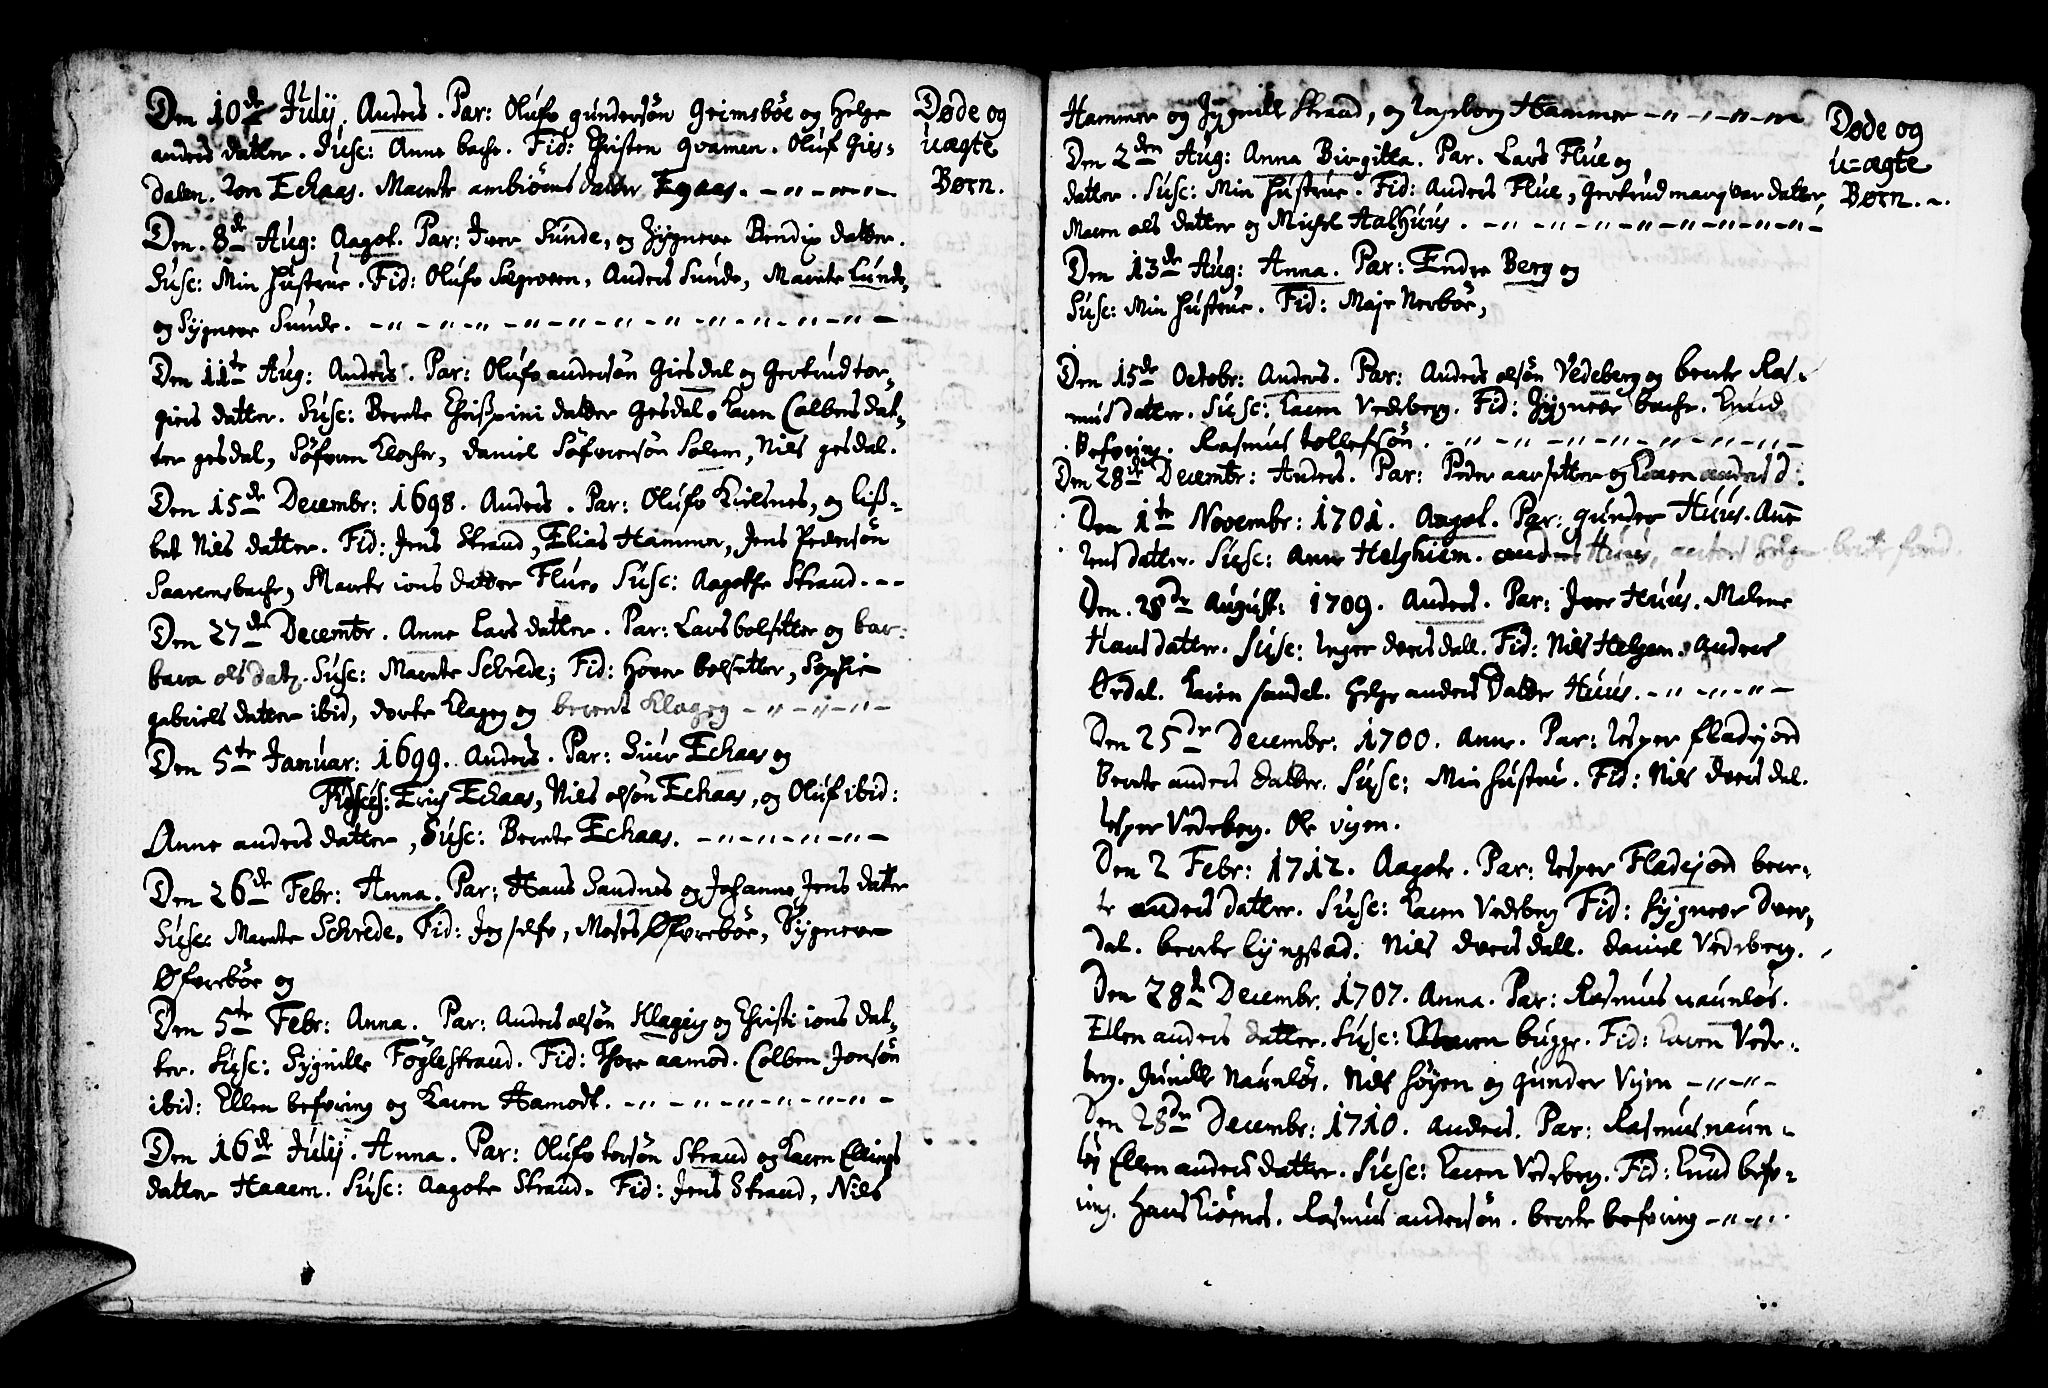 Den 10de Julij. Anders. Par: Olufv gundersön Grimsböe og Helge
anders datter. Susc: Anne bache. Fid: Christen Qvamen. Oluf Gies=
dalen. Echaas. Marete ambiörns datter Egaas.
Den 8de Aug: Aagot. Par: Iver Sunde, og Sygneve Bendix datter.
Susc: Min Hustrue. Fid: Olufv Anders Sunde, Marete Lunde,
og Sygneve Sunde.
Den 11te Aug: Anders. Par: Olufv andersön Giesdal og Gertrud tor=
giers datter. Susc: Berete Chrispini datter Gesdal. Karen Colbens dat=
ter gesdal, Söfvren Klocher, daniel Söfvrensön Solem, Nils gesdal.
Den 15de Decembr: 1698. Anders. Par: Olufv Kielsnes, og liß=
bet Nils datter. Fid: Jens Strand, Elias Hammer, Jens Pedersön
Saaremsbache, Marete ions datter Flue. Susc: Aagothe Strand.
Den 27de Decembr. Anne Lars datter. Par: Lars bolsetter og bar=
bara ols datr. Susc: Marete Schrede; Fid: Hover bolsetter, Sophie
gabriels datter ibid, dorte Klagey og berent Klagey
Den 5te Januar: 1699. Anders. Par: Siur Echaas og
Erich Echaas, Nils olsön Echaas, og Oluf ibid:
Anne anders datter, Susc: Berete Echaas.
Den 26de Febr: Anna. Par: Hans Sandnes og Johanne Jens datter
Susc: Marete Schrede. Fid: Jeg selfv, Moses Øfvreböe, Sygneve
Øfvreböe og
Den 5te Febr: Anna. Par: Anders olsön Klagey og Christi ions dat=
ter. Susc: Sygnille Föglestrand. Fid: Thore aamod. Colben Jonsön
ibid: Ellen befvring og Karen Hamodt.
Den 16de Julij. Anna. Par: Olufv torsön Strand og Karen Ellings
datter Haaem. Susc: Aagote Strand. Fid: Jens Strand, Nils
Døde og
uægte
Børn.
Hammer og Sygnille Strand, og Ingeborg Hammer
Den 2den Aug: Anna Birgitta. Par. Lars Flue og
datter. Susc: Min Hustrue. Fid: Anders Flue, Gertrud datter,
Maren ols datter og Michel Aalhuus.
Den 13de Aug: Anna. Par: Endre Berg og
Susc: Min Hustrue. Fid: Maje Nerböe,
Den 15de Octobr: Anders. Par: Anders olsön Vedeberg og berete Ras=
mus datter. Susc: Karen Vedeberg. Fid: Sygneve bache. Knud
Befvring. Rasmus tollefsön.
Den 28de Decembr: Anders. Par: Peder aarsetter og Karen anders d:
Den 1te Novembr: 1701. Aagot. Par: gunder Huus. Ane
Iens datter. Susc: Anne Helghiem. anders Huus, berete
Den 28de August: 1709. Anders. Par: Iver Huus. Malene
Hans datter. Susc: Inger dversdall. Fid: Nils Helgem. Anders
Ørdal. Karen sandal. Helge anders datter Huus.
Den 25de Decembr: 1700. Anne. Par: Iesper fladejord
Berete anders datter. Susc: Min Hustrue. Fid: Nils dversdal.
Iesper Vedeberg. Ole vijen.
Den 2 Febr: 1712. Aagote. Par: Iesper Fladejord bere=
te anders datter. Susc: Karen Vedeberg Fid: Sygneve dver=
dal. berete lyngstad. Nils dversdall. daniel Vedeberg.
Den 28de Decembr. 1707. Anna. Par: Rasmus naunlös.
Ellen anders datter. Susc: Maren bugge. Fid: Karen Vede=
berg. Gunille Naunlös. Nils höyen og gunder Vijen
Den 28de Decembr: 1710. Anders. Par: Rasmus naun=
lös Ellen anders datter. Susc: Karen Vedeberg. Fid: Knud befv=
ring. Hans Kiörnes. Rasmus andersön. berete befvring
Døde og
u=ægte
Børn.